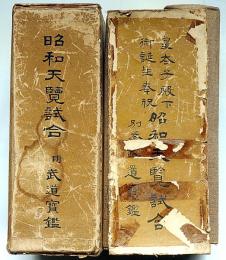 皇太子殿下
御誕生奉祝
昭和天覧試合
別冊武道寶鑑
昭和天覽試合
附武道寶鑑